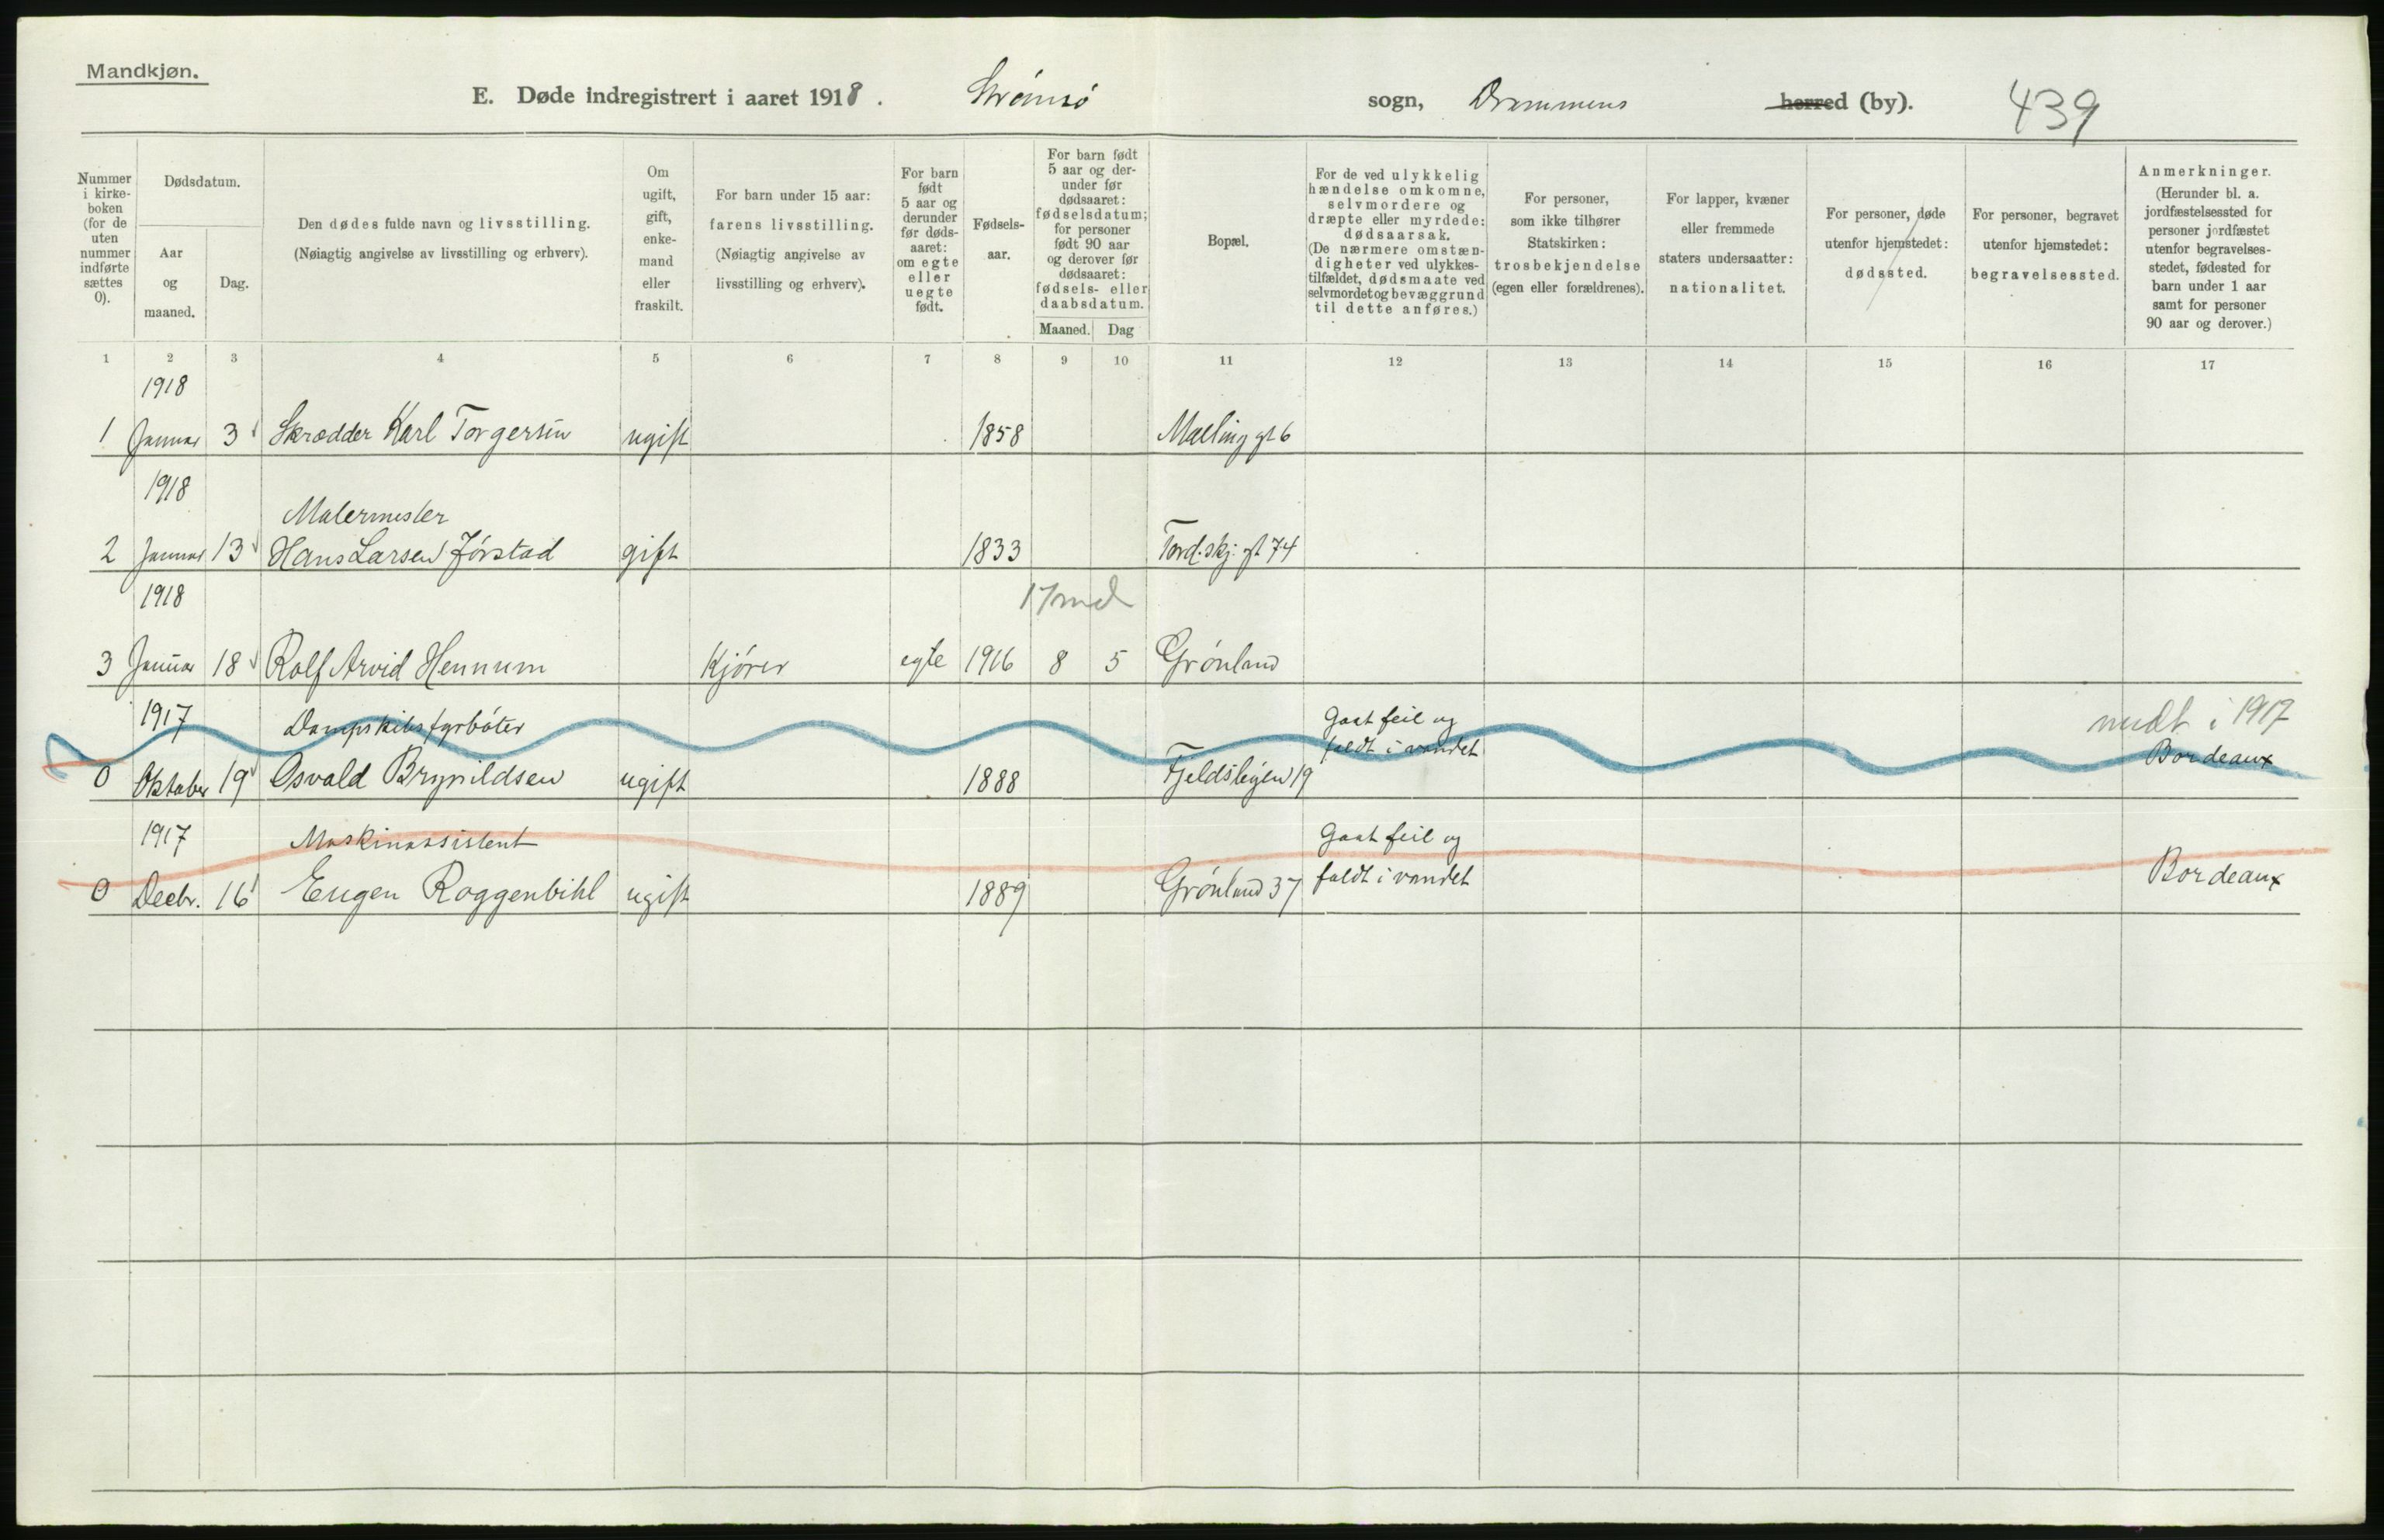 Mandkjøn.
E. Døde indregistrert i aaret 1918. Strømsø sogn, Drammens herred (by). 439
Nummer i kirkeboken (for de uten nummer indførte sættes 0).
Dødsdatum.
Aar og maaned.
Dag.
Den dødes fulde navn og livsstilling.
(Nøiagtig angivelse av livsstilling og erhverv).
Om ugift, gift, enkemand eller fraskilt.
For barn under 15 aar:
farens livsstilling.
(Nøiagtig angivelse av livsstilling og erhverv).
For barn født 5 aar og derunder før dødsaaret: om egte eller uegte født.
Fødselsaar.
For barn født 5 aar og derunder før dødsaaret: fødselsdatum; for personer født 90 aar og derover før dødsaaret: fødsels- eller daabsdatum.
Maaned. Dag
Bopæl.
For de ved ulykkelig hændelse omkomne, selvmordere og dræpte eller myrdede: dødsaarsak. (De nærmere omstændigheter ved ulykkestilfældet, dødsmaate ved selvmordet og bevæggrund til dette anføres.)
For personer, som ikke tilhører Statskirken: trosbekjendelse (egen eller forældrenes).
For lapper, kvæner eller fremmede staters undersaatter: nationalitet.
For personer, døde utenfor hjemstedet: dødssted.
For personer, begravet utenfor hjemstedet: begravelsessted.
Anmerkninger.
(Herunder bl. a. jordfæstelsessted for personer jordfæstet utenfor begravelsesstedet, fødested for barn under 1 aar samt for personer 90 aar og derover.)
1 2 3 4 5 6 7 8 9 10 11 12 13 14 15 16 17
1918
1 Januar 3 Skrædder Karl Torgersen ugift 1858 Mælling gt 6
1918
Malermester
2 Januar 13 Hans Larsen Jórstad gift 1833 Tord.skj. gt 74
1918 17 md
3 Januar 18 Rolf Arvid Hennum Kjórer egte 1916 8 5 Grónland
1917 Dampskibsfyrbóter Gaat feil og medt i 1917
faldt i vandet Bordeaux
0 Oktober 19 Osvald Brynildsen ugift 1888 Fjeldsbyen 19
1917 Maskinassistent Gaat feil og
0 Decbr. 16 Eugen Roggenbihl ugift 1889 Grónland 37 faldt i vandet Bordeaux